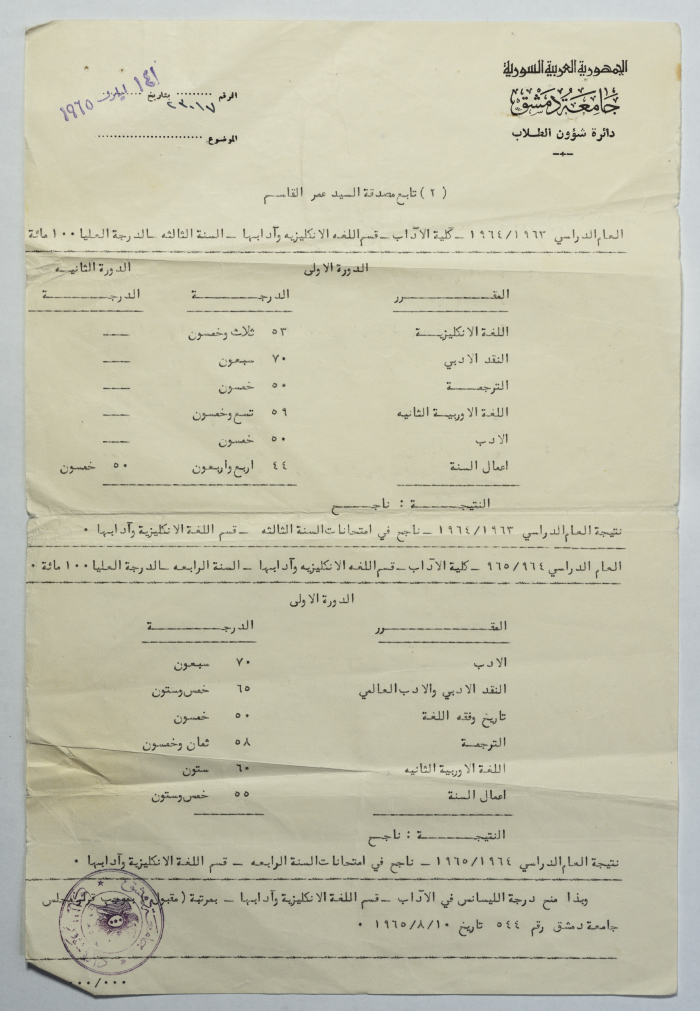 الجمهورية العربية السورية
جامعة دمشق
دائرة شؤون الطلاب
الرقم ......... بتاريخ ١٤ ايلول ١٩٦٥
٢٣٠١٧
الموضوع ..........................
(٢) تابع مصدقة السيد عمر القاسم
العام الدراسي ١٩٦٤/١٩٦٣ ـ كلية الآداب ـ قسم اللغه الانكليزيه وآدابها ـ السنة الثالثه ـ الدرجة العليا ١٠٠ مائة
الدورة الاولى الدورة الثانيه
المقـــــرر الدرجـــــة الدرجـــــة
اللغة الانكليزيـــة ٥٣ ثلاث وخمسون ـــ
النقد الادبي ٧٠ سبعون ـــ
الترجمـــة ٥٠ خمسون ـــ
اللغة الاوربية الثانيه ٥٩ تسع وخمسون ـــ
الادب ٥٠ خمسون ـــ
اعمال السنة ٤٤ اربع واربعون ٥٠ خمسون
النتيجـــــة : ناجـــح
نتيجة العام الدراسي ١٩٦٤/١٩٦٣ ـ ناجح في امتحانات السنة الثالثه ـ قسم اللغة الانكليزية وآدابها ٠
العام الدراسي ٩٦٥/٩٦٤ ـ كلية الآداب ـ قسم اللغه الانكليزيه وآدابها ـ السنة الرابعه ـ الدرجة العليا ١٠٠ مائة ٠
الدورة الاولى
المقـــــرر الدرجـــــة
الادب ٧٠ سبعون
النقد الادبي والادب العالمي ٦٥ خمس وستون
تاريخ وفقه اللغة ٥٠ خمسون
الترجمـــة ٥٨ ثمان وخمسون
اللغة الاوربية الثانيه ٦٠ ستون
اعمال السنة ٥٥ خمس وستون
النتيجـــــة : ناجح
نتيجة العام الدراسي ١٩٦٥/١٩٦٤ ـ ناجح في امتحانات السنة الرابعه ـ قسم اللغة الانكليزية وآدابها ٠
وبذا منح درجة الليسانس في الآداب ـ قسم اللغة الانكليزية وآدابها ـ بمرتبة (مقبول) بموجب قرار مجلس
جامعة دمشق رقم ٥٤٤ تاريخ ١٩٦٥/٨/١٠ ٠
٠٠٠/٠٠٠